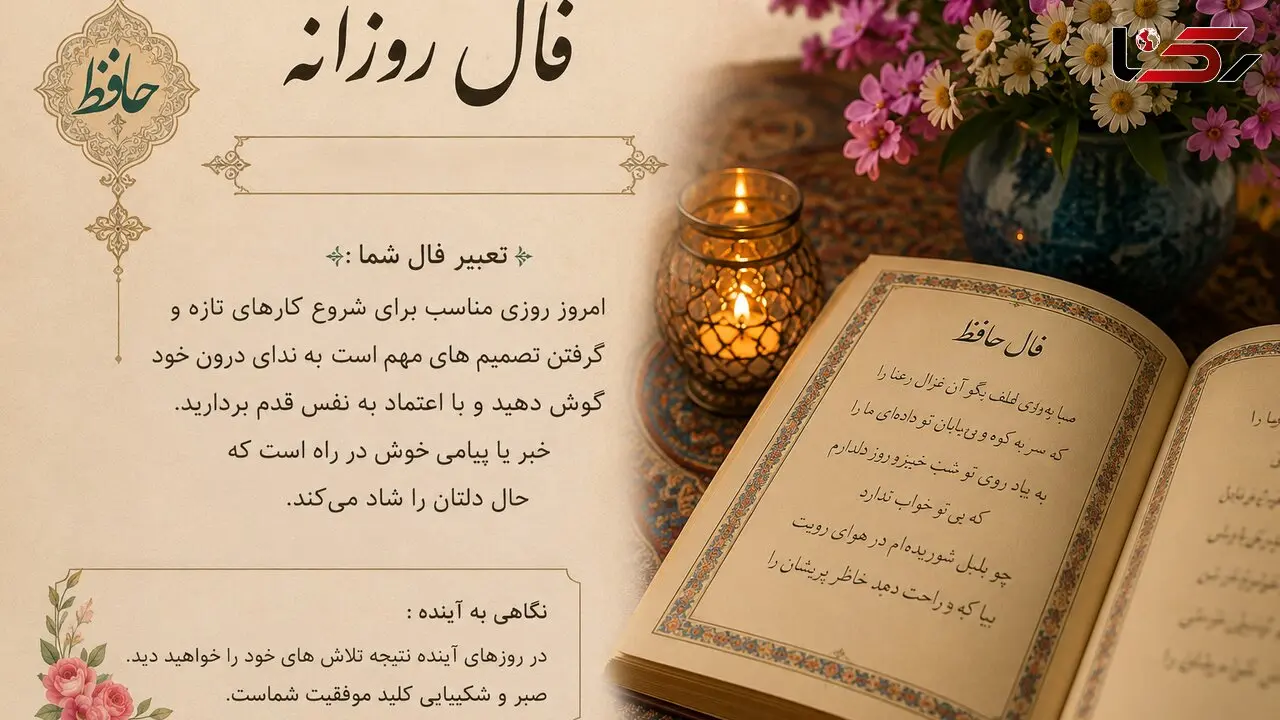 فال روزانه
حافظ
رکنا
تعبیر فال شما :
امروز روزی مناسب برای شروع کارهای تازه و
گرفتن تصمیم های مهم است به ندای درون خود
گوش دهید و با اعتماد به نفس قدم بردارید.
خبر یا پیامی خوش در راه است که
حال دلتان را شاد می‌کند.
نگاهی به آینده :
در روزهای آینده نتیجه تلاش های خود را خواهید دید.
صبر و شکیبایی کلید موفقیت شماست.
فال حافظ
صبا به لطف بگو آن غزال رعنا را
که سر به کوه و بیابان تو داده‌ای ما را
به یاد روی تو شب خیز و روز دلدارم
که بی تو خواب ندارد
چو بلبل شوریده‌ام در هوای رویت
بیا که و راحت دهد خاطر پریشان را